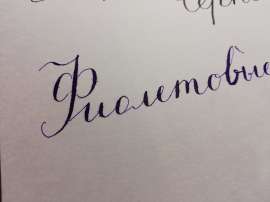 Фиолетовые